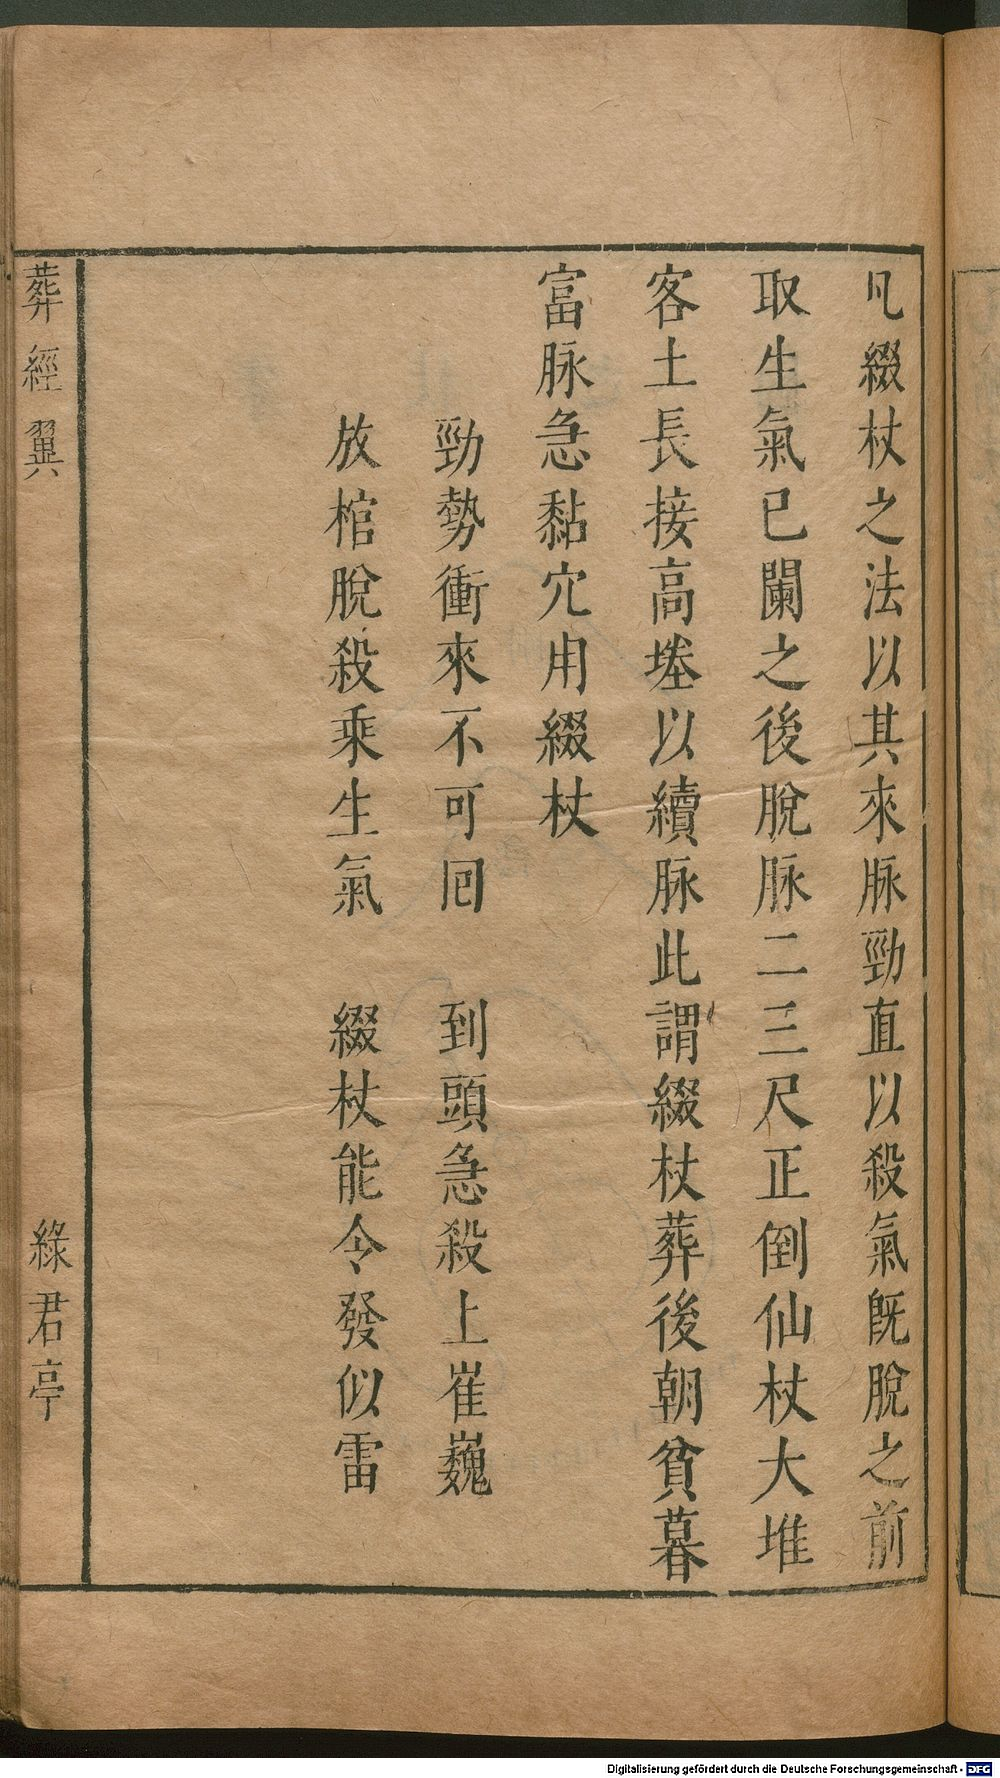 凡綴杖之法以其來脉勁直以殺氣旣脫之前
取生氣已闌之後脫脉二三尺正倒仙杖大堆
客土長接高埄以續脉此謂綴杖葬後朝貧暮
富脉急黏穴用綴杖
勁勢衝來不可囘　到頭急殺上崔巍
放棺脫殺乘生氣　綴杖能令發似雷
葬經翼
綠君亭
Digitalisierung gefördert durch die Deutsche Forschungsgemeinschaft - DFG